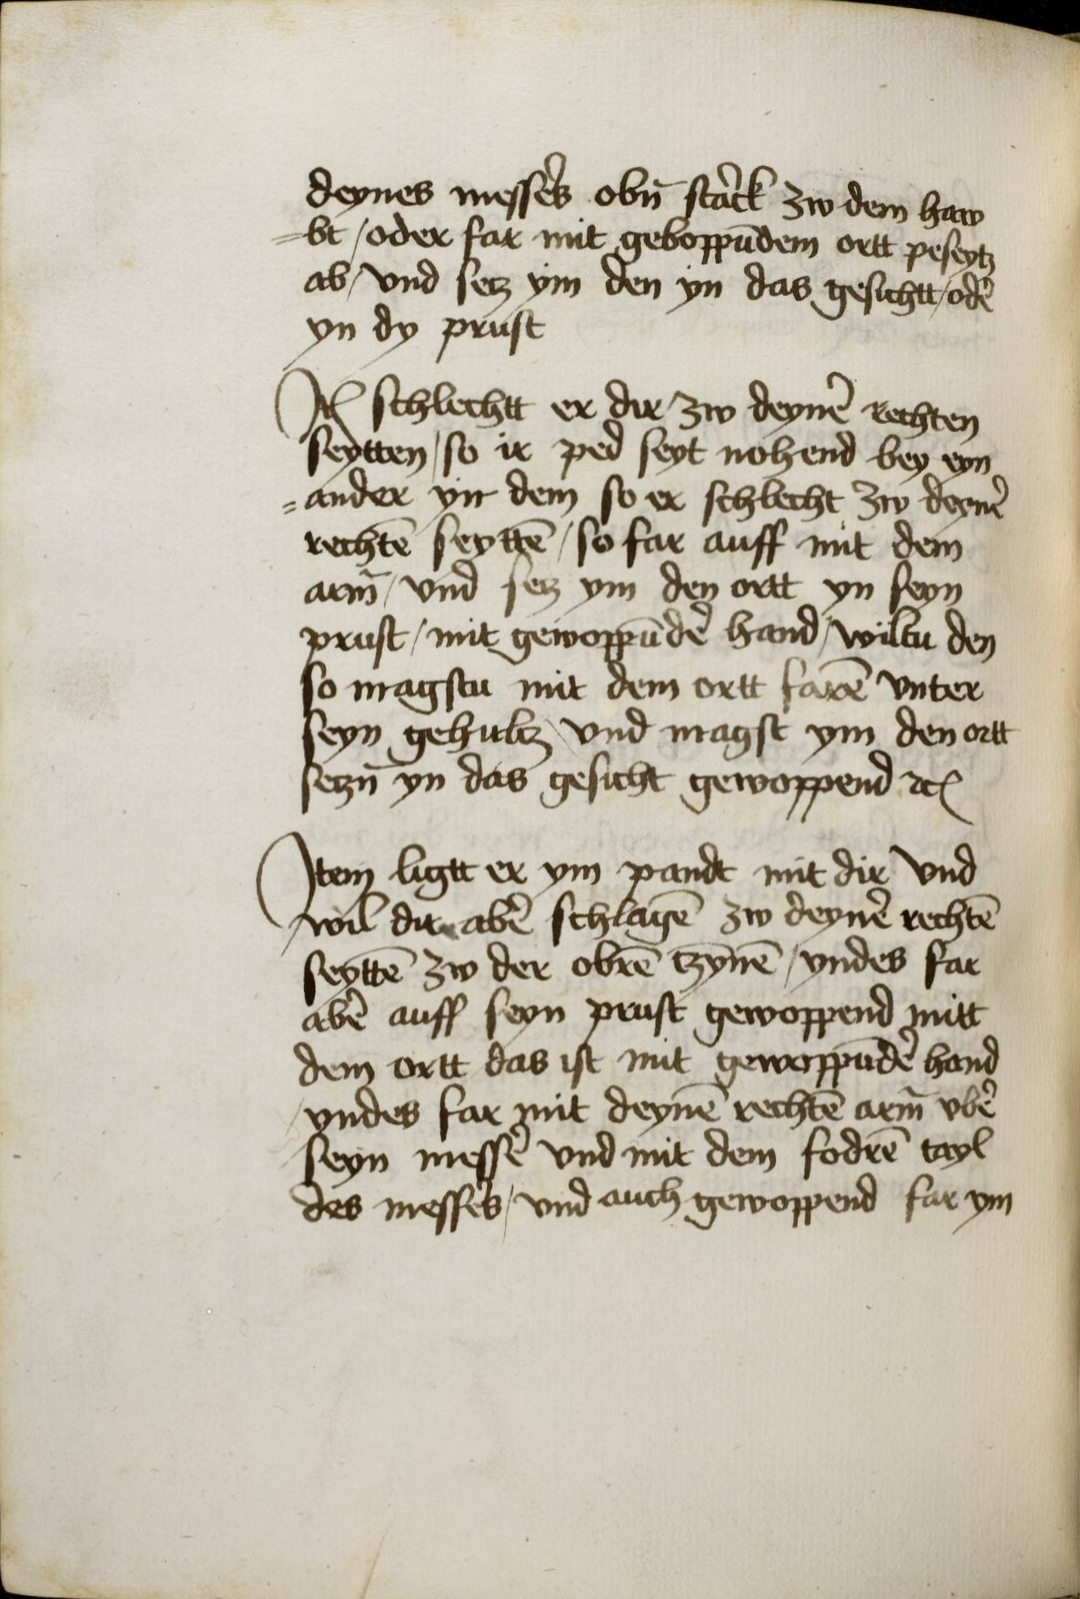 deynes messers obñ starck zw dem haw
=bt / oder far mit geboppūdem ortt peseytz
ab / vnd setz ym den yn das gesichtt / oder
yn dy prust
Itẽ schlechtt er dir zw deyner rechten
seytten / so ir ped seyt nohend bey eyn
=ander yn dem so er schlecht zw deyner
rechtē seyttē / so far auff mit dem
arm̄ / vnd setz ym den ortt yn seyn
prust / mit gewoppūder hand / wiltu den
so magstu mit dem ortt farē vnter
seyn gehultz / vnd magst ym den ortt
setzn̄ yn das gesicht gewoppend ꝛcꝭ
Item ligtt er ym pandt mit dir vnd
/ wil dir aber schlagē zw deyner rechtē
seyttē zw der obrē tzynē / yndes far
aber auff seyn prust gewoppend mitt
dem ortt das ist mit gewoppūder hand
/ yndes far mit deynē rechtē arm̄ vber
seyn messer vnd mit dem fodrē tayl
des messers / vnd auch gewoppend far ym